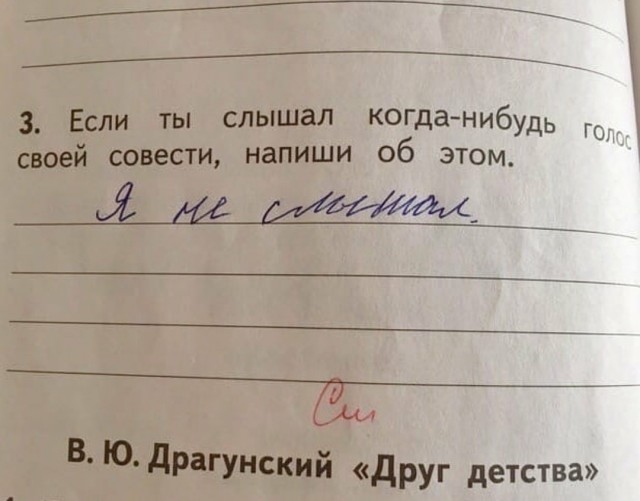 3. Если ты слышал когда-нибудь голос
своей совести, напиши об этом.
Я не слышал.
См
В. Ю. Драгунский «Друг детства»